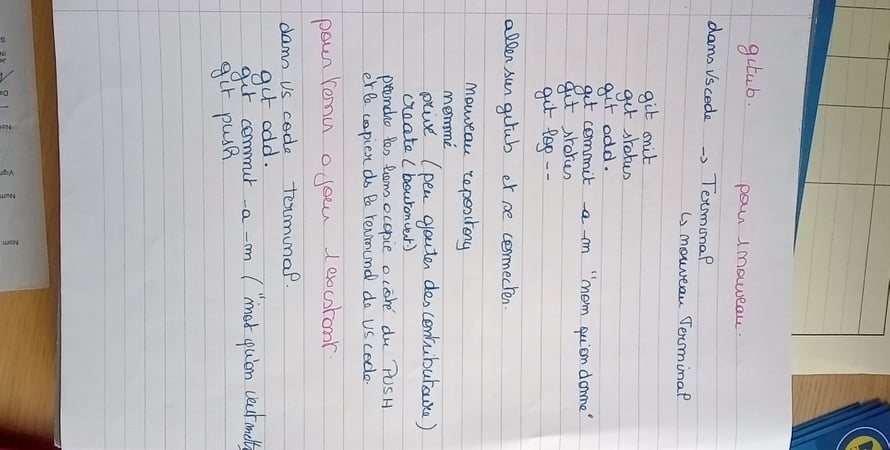 gitub. pour 1 nouveau.
dans Vs code -> Terminal
↳ nouveau Terminal
git init
git status
git add.
git commit -a -m "nom qu'on donne"
git status
git log --
aller sur gitub et se connecter.
nouveau repository
nommé
privé (peu ajouter des contributaire)
create (bouton vert)
prendre les liens a copie a côté du PUSH
et le copier ds le terminal de VS code.
pour remis a jour l'existant.
dans VS code terminal.
git add.
git commit -a -m ("mot qu'on veut
git push
Nom
Num